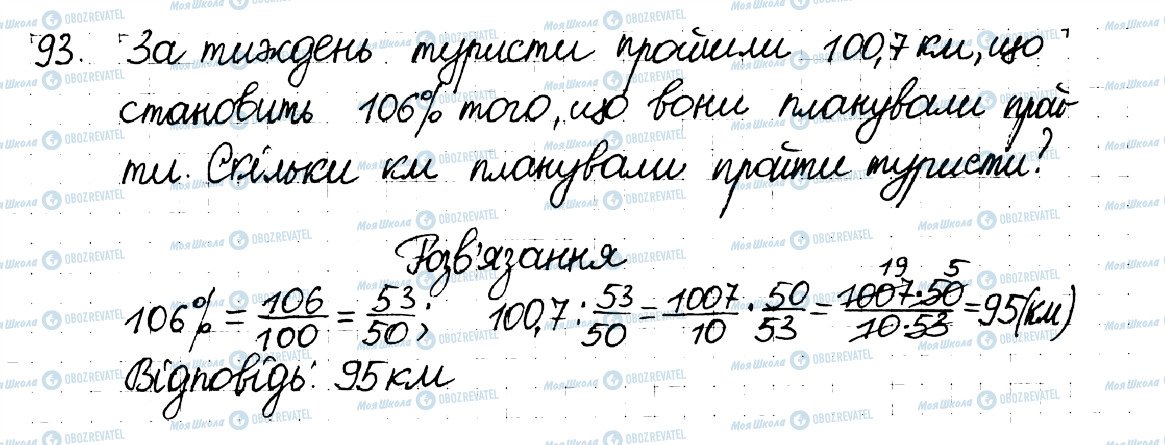 93. За тиждень туристи пройшли 100,7 км, що
становить 106% того, що вони планували прой-
ти. Скільки км планували пройти туристи?
Розв'язання
106% = 106/100 = 53/50; 100,7 : 53/50 = 1007/10 · 50/53 = 1007·50/10·53 = 95(км)
19 5
Відповідь: 95 км
Моя Школа OBOZREVATEL